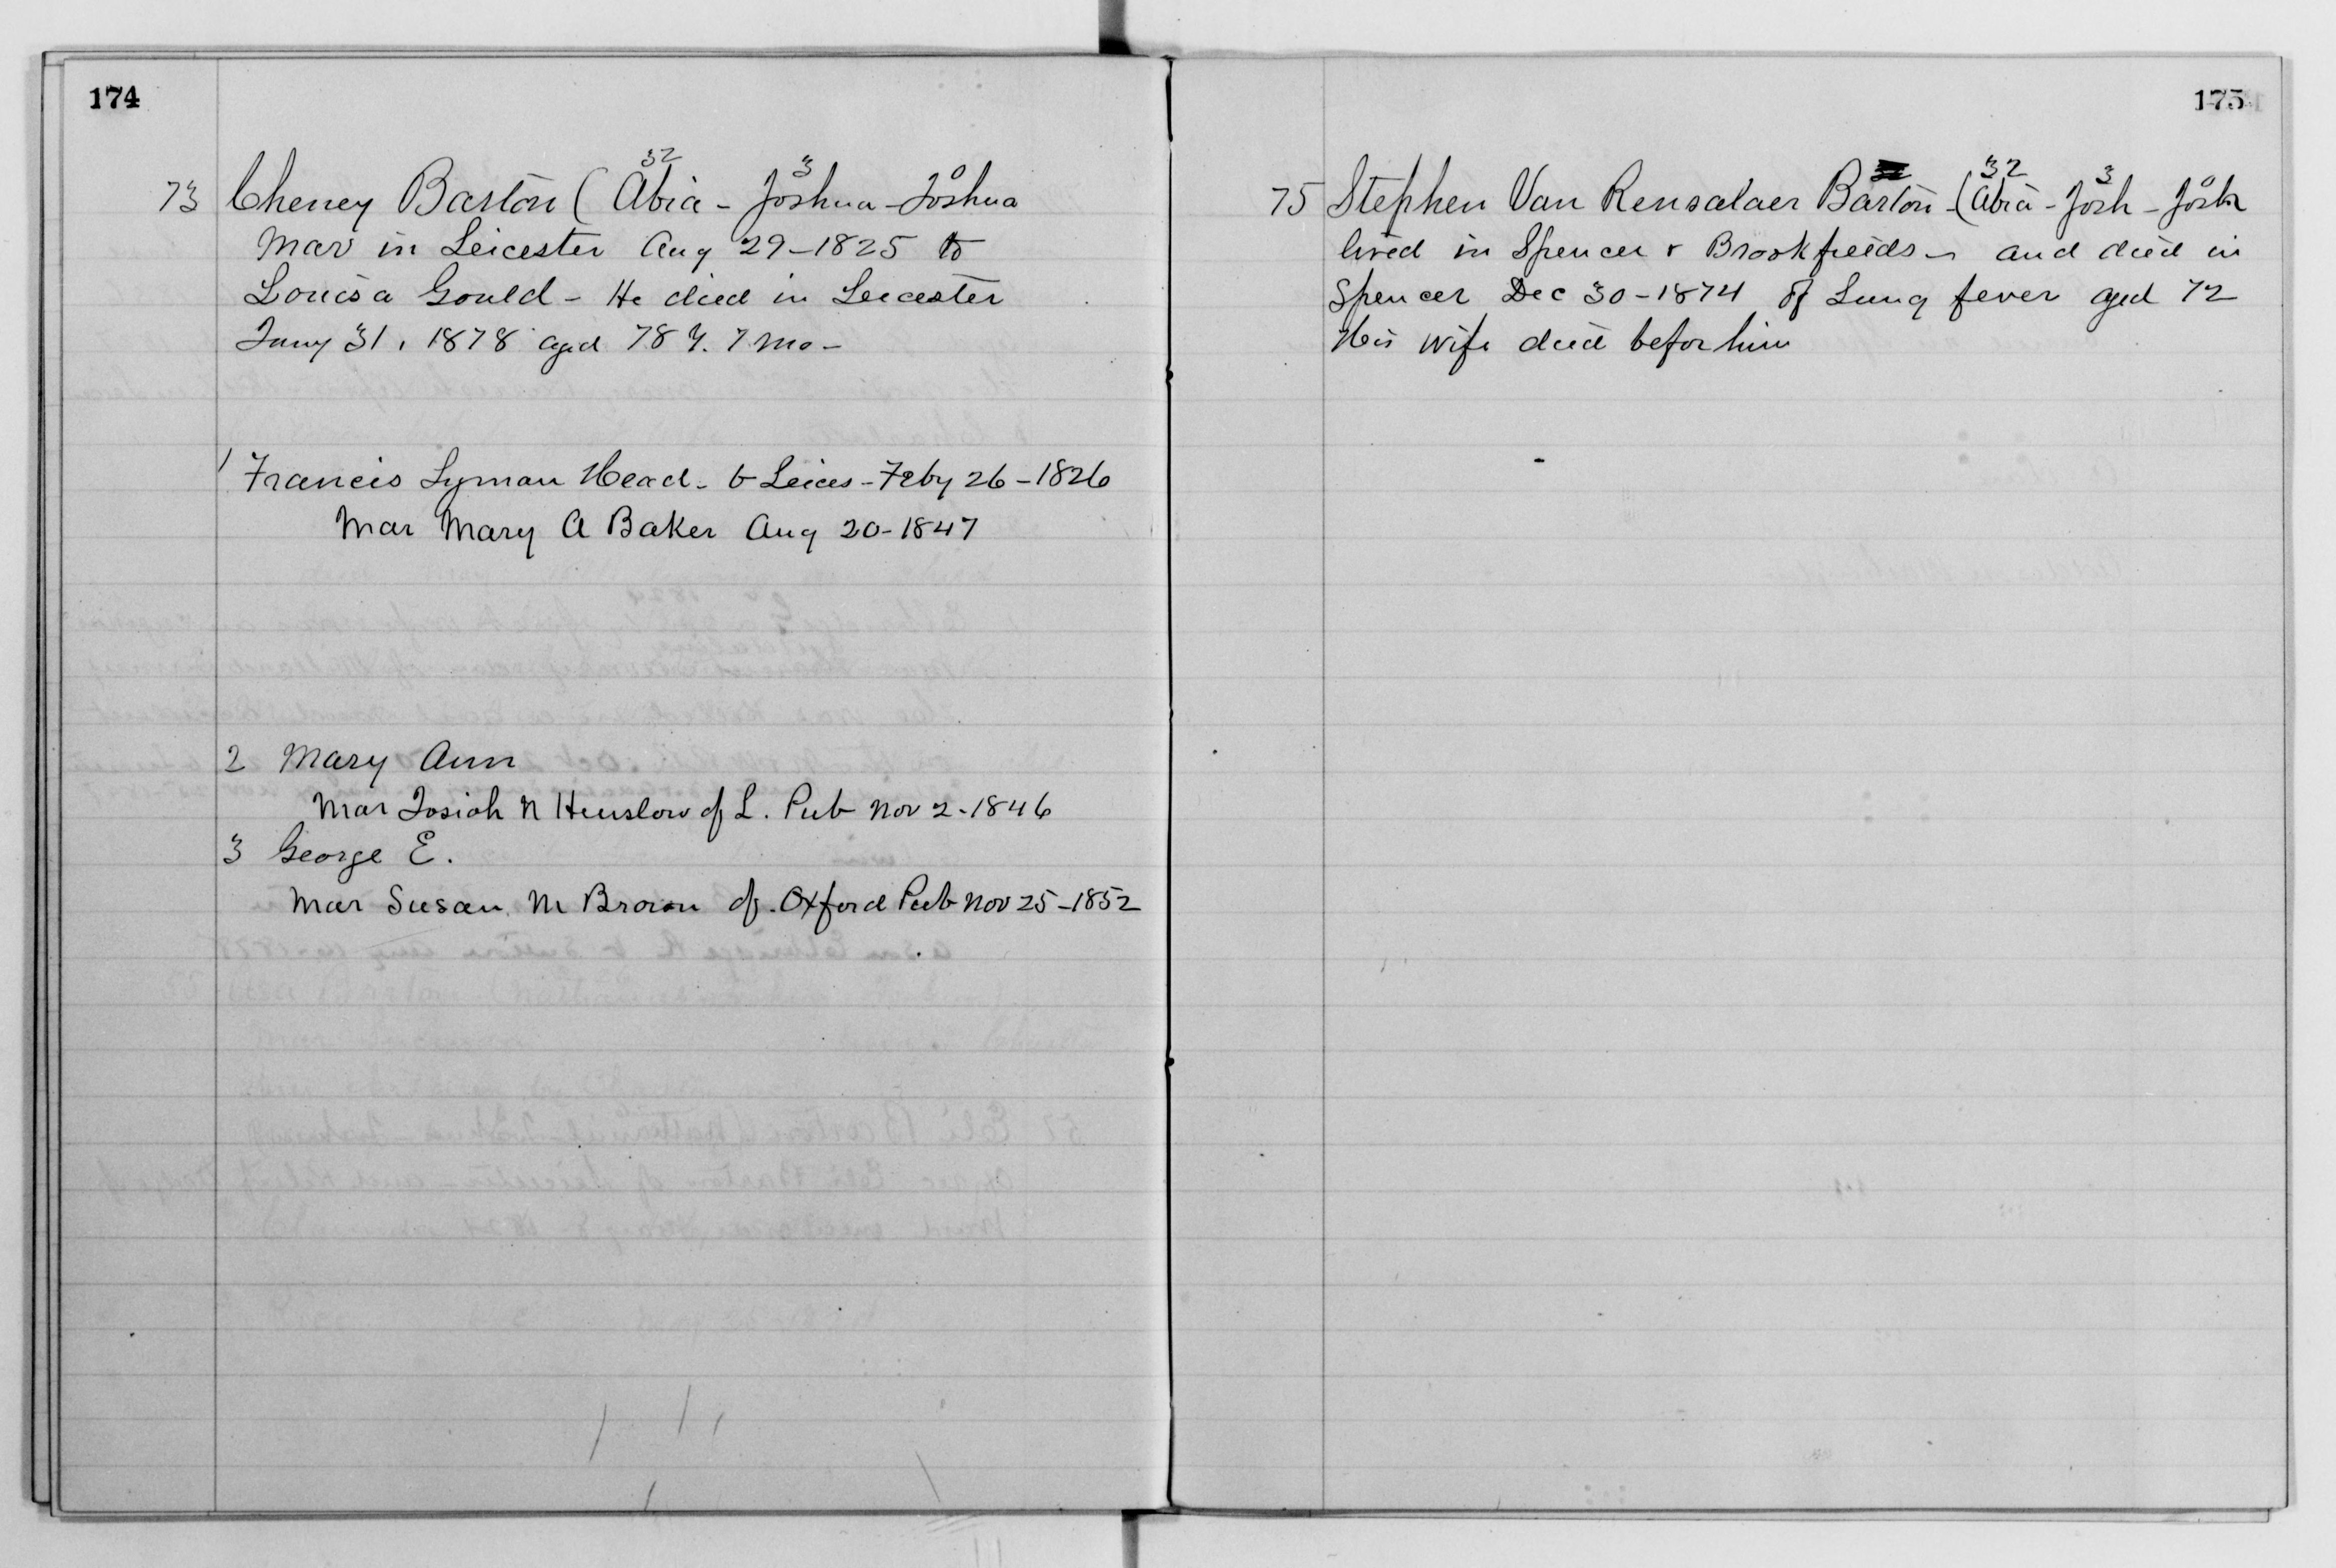 174
32 3 0
73 Cheney Barton (Abia - Joshua - Joshua
Mar in Leicester Aug 29-1825 to
Louisa Gould - He died in Leicester
Jany 31, 1878 aged 78 Y. 7 mo -
1 Francis Lyman Head - b Leices - Feby 26-1826
Mar Mary A Baker Aug 20-1847
2 Mary Ann
Mar Josiah N Henslow of L. Pub Nov 2-1846
3 George E.
Mar Susan M Brown of Oxford Pub Nov 25-1852
175
32 3 0
75 Stephen Van Rensalaer Barton - (Abia - Josh - Josh
lived in Spencer & Brookfields - and died in
Spencer Dec 30-1874 of Lung fever aged 72
His wife died befor him